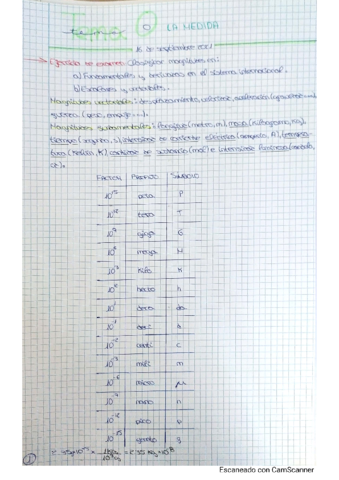 Tema 0 LA MEDIDA
16 de septiembre 2021
Ejercicio de examen: Clasificar magnitudes en:
a) Fundamentales y derivadas en el sistema internacional.
b) Escalares y vectoriales.
Magnitudes vectoriales: desplazamiento, velocidad, aceleración
fuerza (peso, empuje ...).
Magnitudes fundamentales: longitud (metro, m), masa (kilogramo, kg),
tiempo (segundo, s), intensidad de corriente eléctrica (amperio, A), tempera-
tura (kelvin, K), cantidad de sustancia (mol) e intensidad luminosa (candela,
cd).
FACTOR PREFIJO SÍMBOLO
10¹⁵ P
10¹² tera T
10⁹ giga G
10⁶ mega M
10³ kilo K
10² hecto h
10¹ deca da
10⁻¹ deci
10⁻² centi c
10⁻³ mili m
10⁻⁶ micro μ
10⁻⁹ nano n
10⁻¹² pico p
10⁻¹⁵
Escaneado con CamScanner